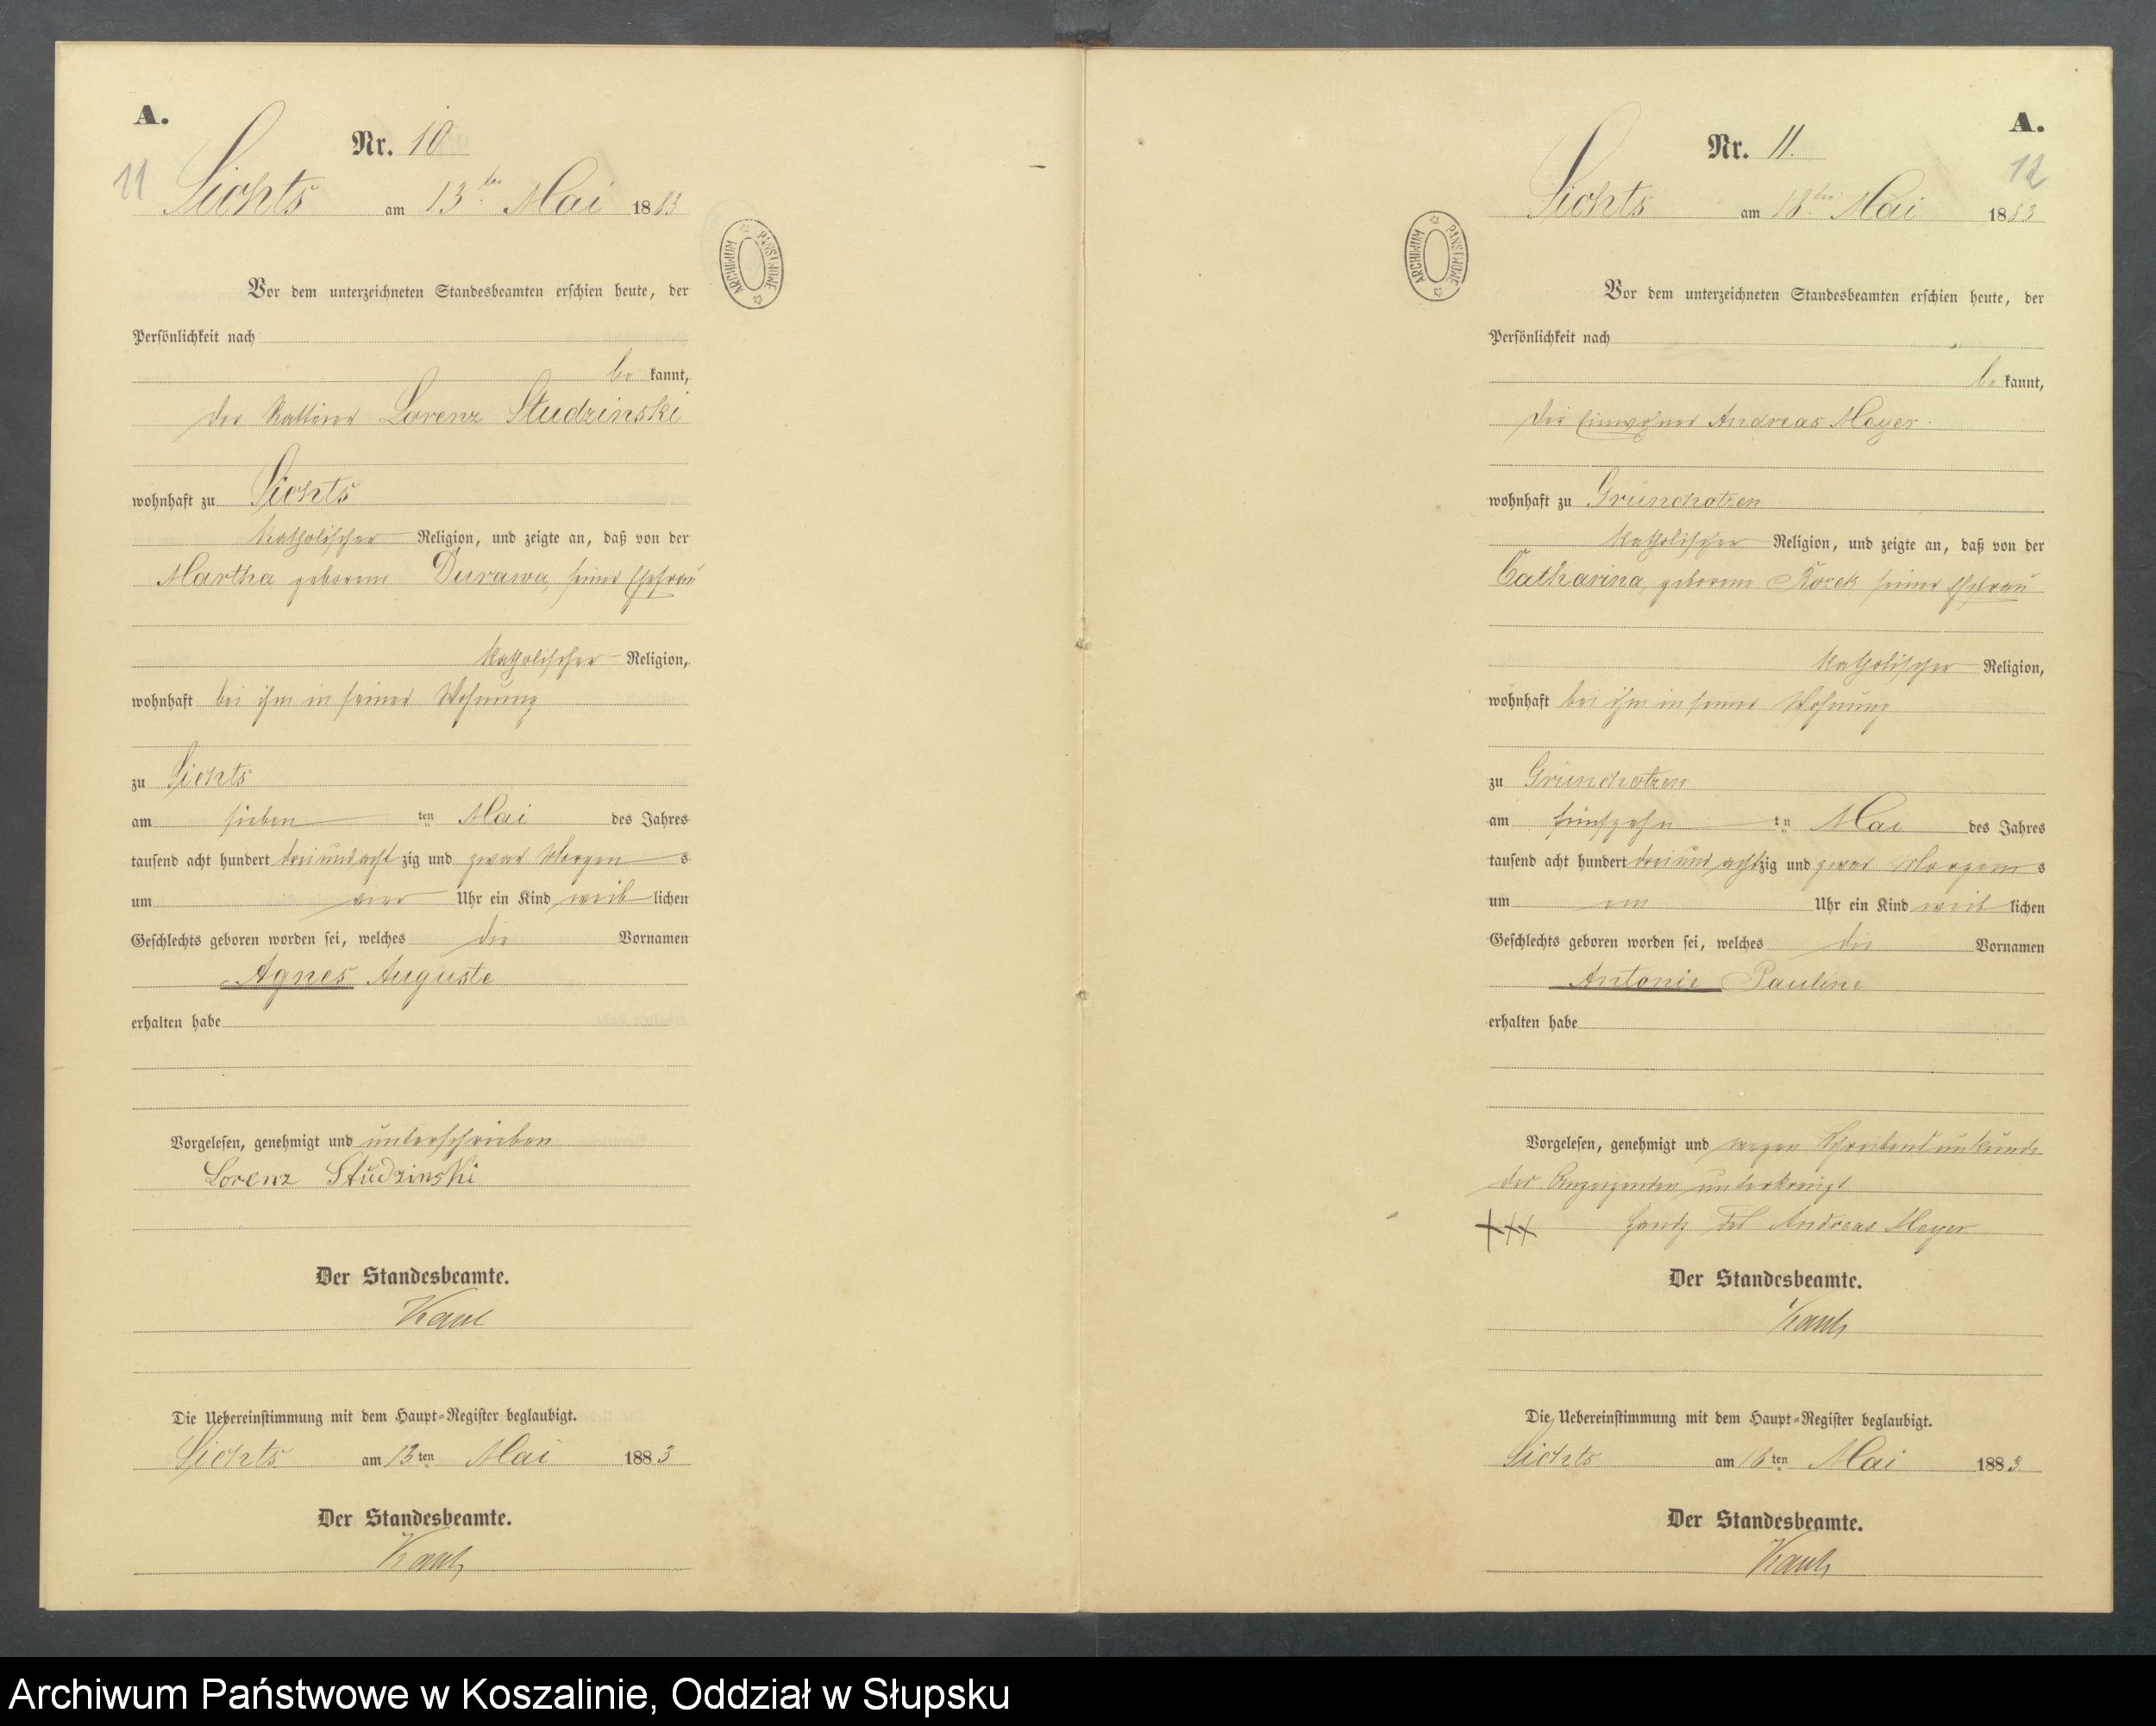 A.
Nr. 10
11
Lichts am 13ten Mai 1883
Vor dem unterzeichneten Standesbeamten erschien heute, der
Persönlichkeit nach
be kannt,
der Lorenz Studzinski
wohnhaft zu Lichts
katholischer Religion, und zeigte an, daß von der
Martha geborene Durawa, seiner Ehefrau
katholischer Religion,
wohnhaft bei ihm in seiner Wohnung
zu Lichts
am sieben ten Mai des Jahres
tausend acht hundert dreiundacht zig und zwar Morgen s
um vier Uhr ein Kind weib lichen
Geschlechts geboren worden sei, welches die Vornamen
Agnes Auguste
erhalten habe
Vorgelesen, genehmigt und unterschrieben
Lorenz Studzinski
Der Standesbeamte.
Die Uebereinstimmung mit dem Haupt-Register beglaubigt.
Lichts am 13ten Mai 1883
Der Standesbeamte.
ARCHIWUM PAŃSTWOWE
A.
Nr. 11.
12
Lichts am 18ten Mai 1883
ARCHIWUM PAŃSTWOWE
Vor dem unterzeichneten Standesbeamten erschien heute, der
Persönlichkeit nach
be kannt,
der Einwohner Andreas Meyer.
wohnhaft zu Grünchotzen
katholischer Religion, und zeigte an, daß von der
Catharina, geborene Kozek seiner Ehefrau
katholischer Religion,
wohnhaft bei ihm in seiner Wohnung
zu Grünchotzen
am fünfzehn tn Mai des Jahres
tausend acht hundert dreiund achtzig und zwar Morgens
um Uhr ein Kind weib lichen
Geschlechts geboren worden sei, welches die Vornamen
Antonie Pauline
erhalten habe
Vorgelesen, genehmigt und wegen Schreibensunkunde
des Anzeigenden unterkreuzt
+++ Handz. des Andreas Meyer
Der Standesbeamte.
Die Uebereinstimmung mit dem Haupt-Register beglaubigt.
Lichts am 18ten Mai 1883.
Der Standesbeamte.
Archiwum Państwowe w Koszalinie, Oddział w Słupsku